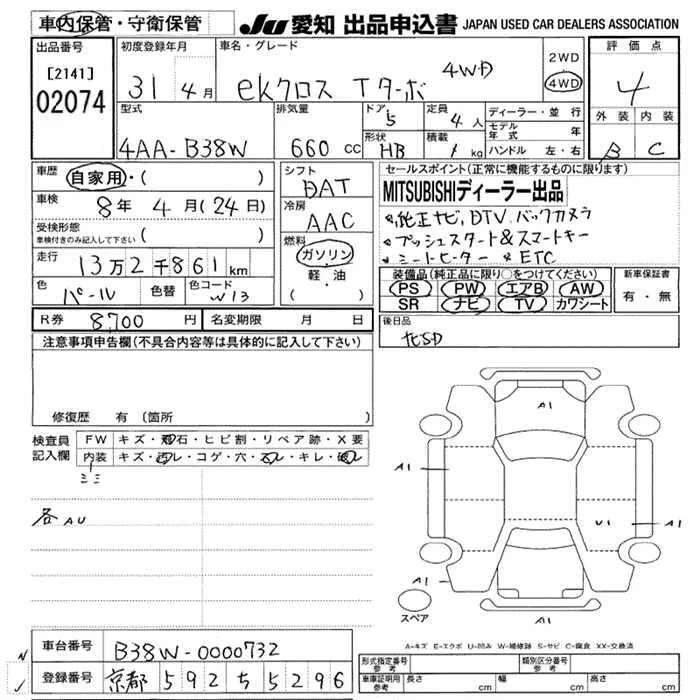 車内保管・守衛保管
JU 愛知 出品申込書 JAPAN USED CAR DEALERS ASSOCIATION
出品番号
[2141]
02074
初度登録年月
31 4月
車名・グレード
eKクロス Tターボ 4WD
2WD
4WD
評価点
4
外装 内装
B C
型式
4AA-B38W
排気量
660 cc
ドア 5
形状 HB
定員 4人
積載 kg
ディーラー・並行
モデル年式 年
ハンドル 左・右
車歴
自家用・( )
車検
8年 4月(24日)
受検形態
車検付きのみ記入して下さい ( )
走行
13万2千861km
色
パール
色替
色コード
W13
シフト
DAT
冷房
AAC
燃料
ガソリン
軽・油
( )
セールスポイント(正常に機能するものに限ります)
MITSUBISHIディーラー出品
*純正ナビ,DTV,バックカメラ
*プッシュスタート&スマートキー
*シートヒーター *ETC
装備品(純正品に限り○をつけてください)
PS PW エアB AW
SR ナビ TV カワシート
新車保証書
有・無
R券 8,700円
名変期限 月 日
後日品
注意事項申告欄(不具合内容等は具体的に記入して下さい)
修復歴 有(箇所 )
検査員記入欄
FW キズ・飛石・ヒビ割・リペア跡・X要
内装 キズ・汚レ・コゲ・穴・スレ・キレ・破レ
各AU
A1
A1
A1
U1
A1
A1
スペア
A-キズ E-エクボ U-凹み W-補修跡 S-サビ C-腐食 XX-交換済
車台番号
B38W-0000732
登録番号
京都 592 ち 5296
形式指定番号 参考
類別区分番号 参考
車庫証明用 参考
長さ cm
幅 cm
高さ cm